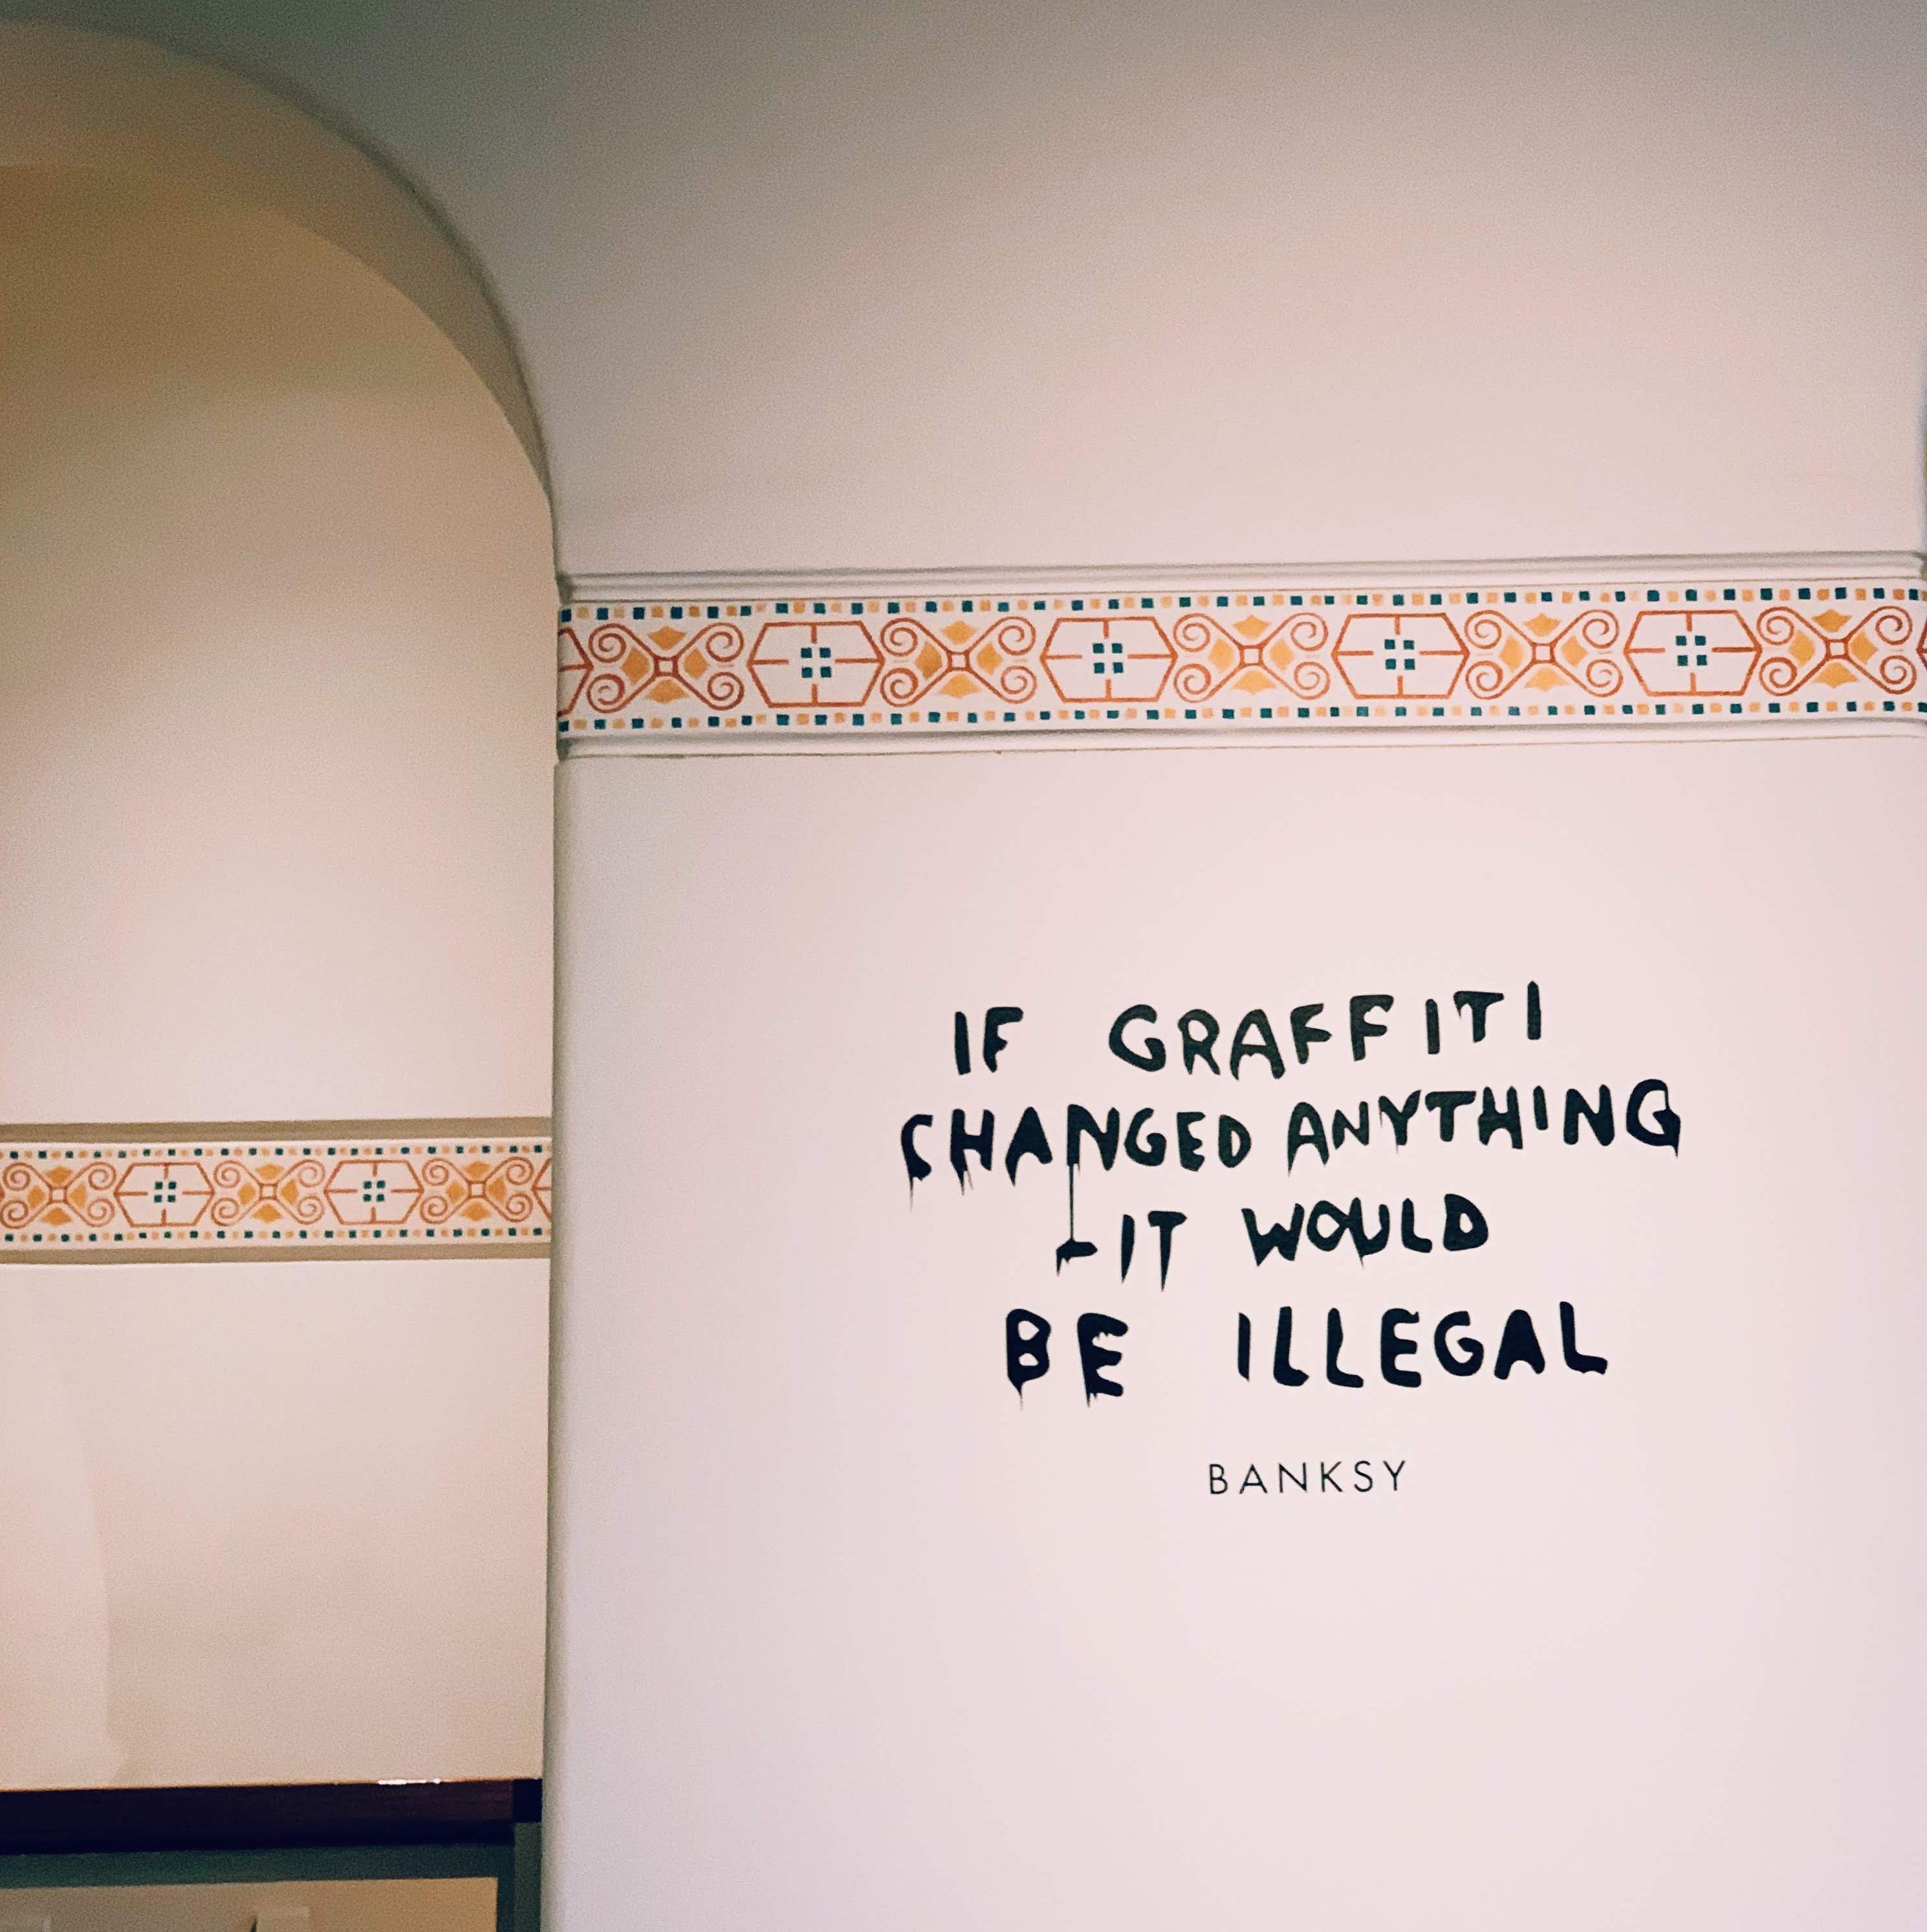 IF GRAFFITI
CHANGED ANYTHING
-IT WOULD
BE ILLEGAL
BANKSY